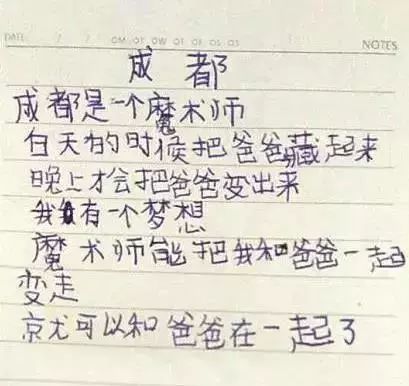 DATE / / OM OT OW OT OF OS OS
NOTES
成都
成都是一个魔术师
白天的时候把爸爸藏起来
晚上才会把爸爸变出来
我有一个梦想
魔术师能把我和爸爸一起
变走
京尤可以和爸爸在一起了